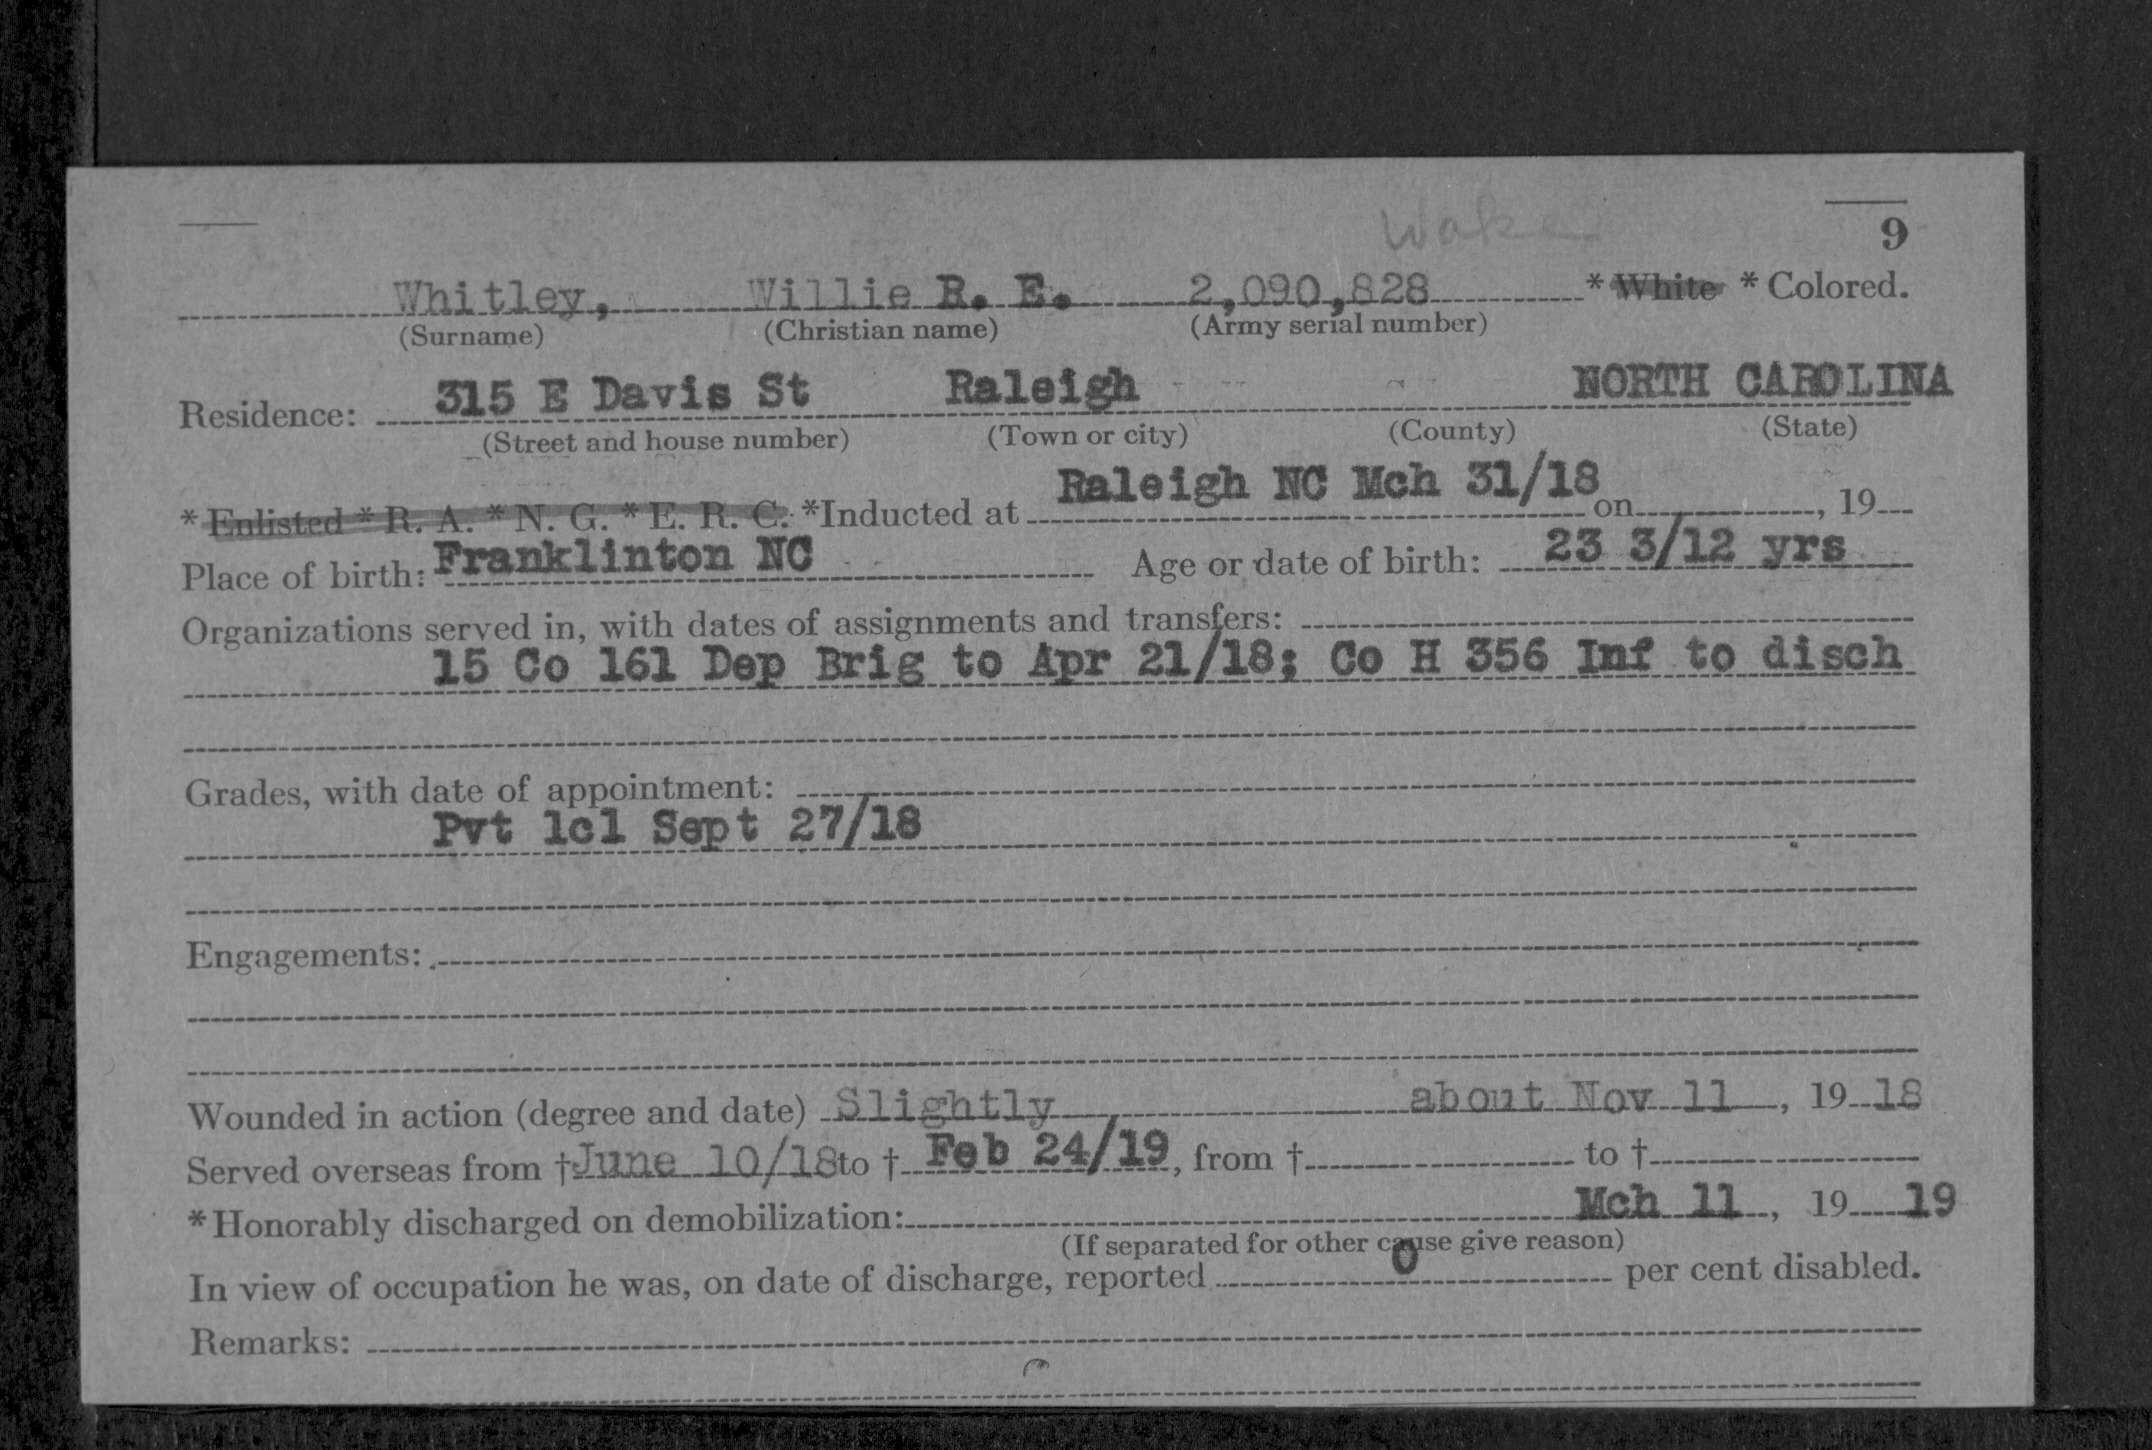 Wake
9
Whitley, Willie R. E. 2,090,828 * White * Colored.
(Surname) (Christian name) (Army serial number)
315 E Davis St Raleigh NORTH CAROLINA
Residence:
(Street and house number) (Town or city) (County) (State)
Raleigh NC Mch 31/18
* Enlisted * R. A. * N. G. * E. R. C. *Inducted at on , 19
Place of birth: Franklinton NC Age or date of birth: 23 3/12 yrs
Organizations served in, with dates of assignments and transfers:
15 Co 161 Dep Brig to Apr 21/18; Co H 356 Inf to disch
Grades, with date of appointment:
Pvt 1cl Sept 27/18
Engagements:
Wounded in action (degree and date) Slightly about Nov 11, 19 18
Served overseas from † June 10/18 to † Feb 24/19, from † to †
* Honorably discharged on demobilization: Mch 11, 19 19
(If separated for other cause give reason)
In view of occupation he was, on date of discharge, reported 0 per cent disabled.
Remarks: